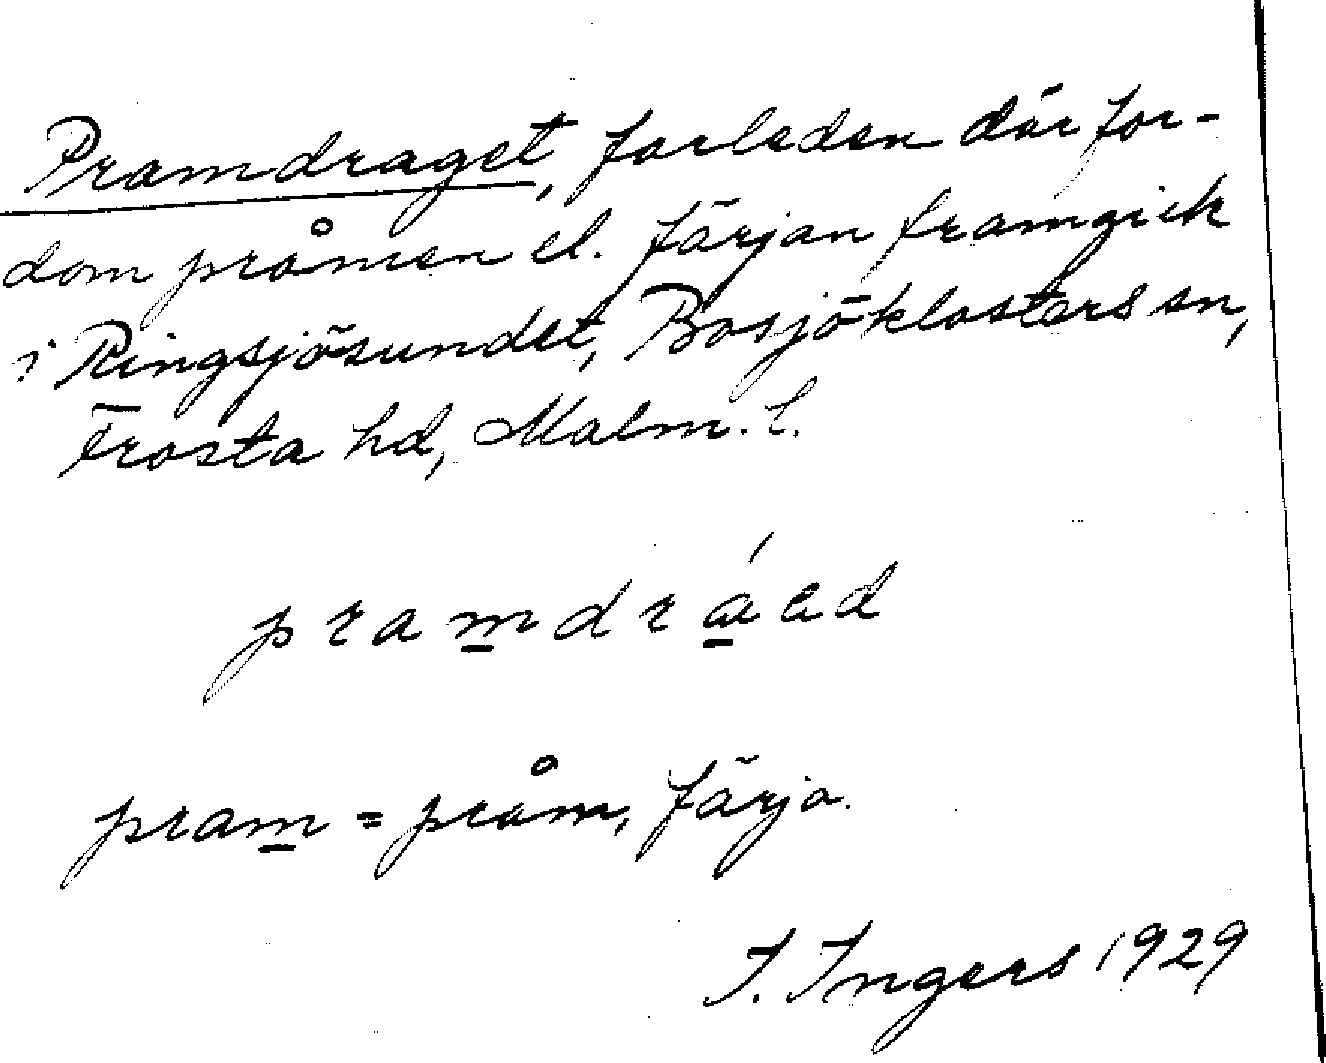 Pramdraget, farleden där for-
dom pråmen el. färjan framgick
i Ringsjösundet, Bosjöklosters sn,
Frosta hd, Malm. l.
pram = pråm, färja.
I. Ingers 1929